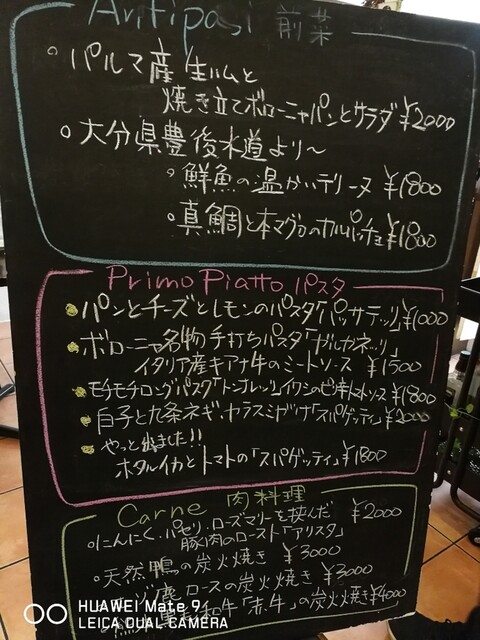 Antipasti 前菜
パルマ産生ハムと
焼き立てボローニャパンとサラダ ¥2000
大分県豊後水道より～
鮮魚の温かいテリーヌ ¥1800
真鯛と本マグロのカルパッチョ ¥1800
Primo Piatto パスタ
パンとチーズとレモンのパスタ「パッサテッリ」¥1000
ボローニャ名物 手打ちパスタ「ガルガネッリ」
イタリア産キアナ牛のミートソース ¥1500
モチモチロングパスタ「トンナレッリ」イワシのピリ辛トマトソース ¥1800
白子と九条ネギ、カラスミがけ「スパゲッティ」¥2000
やっと出ました!!
ホタルイカとトマトの「スパゲッティ」¥1800
Carne 肉料理
にんにく、パセリ、ローズマリーを挟んだ ¥2000
豚肉のロースト「アリスタ」
天然鴨の炭火焼き ¥3000
鹿ロースの炭火焼き ¥3000
和牛「赤牛」の炭火焼 ¥4000
HUAWEI Mate 9
LEICA DUAL CAMERA